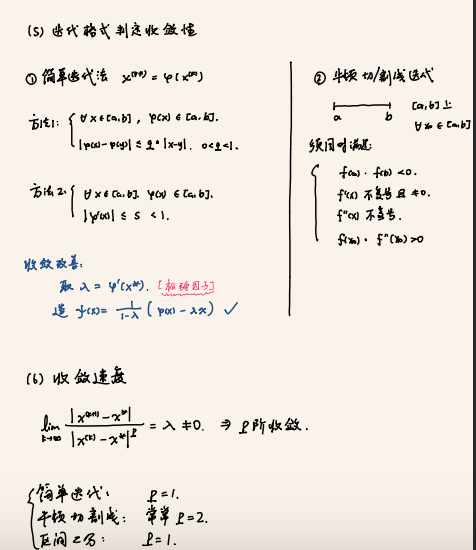 (5) 迭代格式判定收敛性
① 简单迭代法 x^(k+1) = φ(x^(k))
方法1: { ∀x∈[a,b], φ(x)∈[a,b].
|φ(x)-φ(y)| ≤ ρ·|x-y|. 0<ρ<1.
方法2: { ∀x∈[a,b], φ(x)∈[a,b].
|φ'(x)| ≤ s <1.
收敛改善:
取 λ = φ'(x^(k)). [松弛因子]
造 ψ(x) = 1/(1-λ) (φ(x) - λx) ✓
② 牛顿切/割线迭代
a b [a,b]上
∀x₀∈[a,b]
须同时满足:
{ f(a)·f(b) <0.
f'(x) 不变号且≠0.
f''(x) 不变号.
f(x₀)·f''(x₀)>0
(6) 收敛速度
lim k→∞ |x^(k+1) - x*| / |x^(k) - x*|^ρ = λ ≠0. ⇒ ρ阶收敛.
{ 简单迭代: ρ=1.
牛顿切割线: 常常 ρ=2.
区间二分: ρ=1.